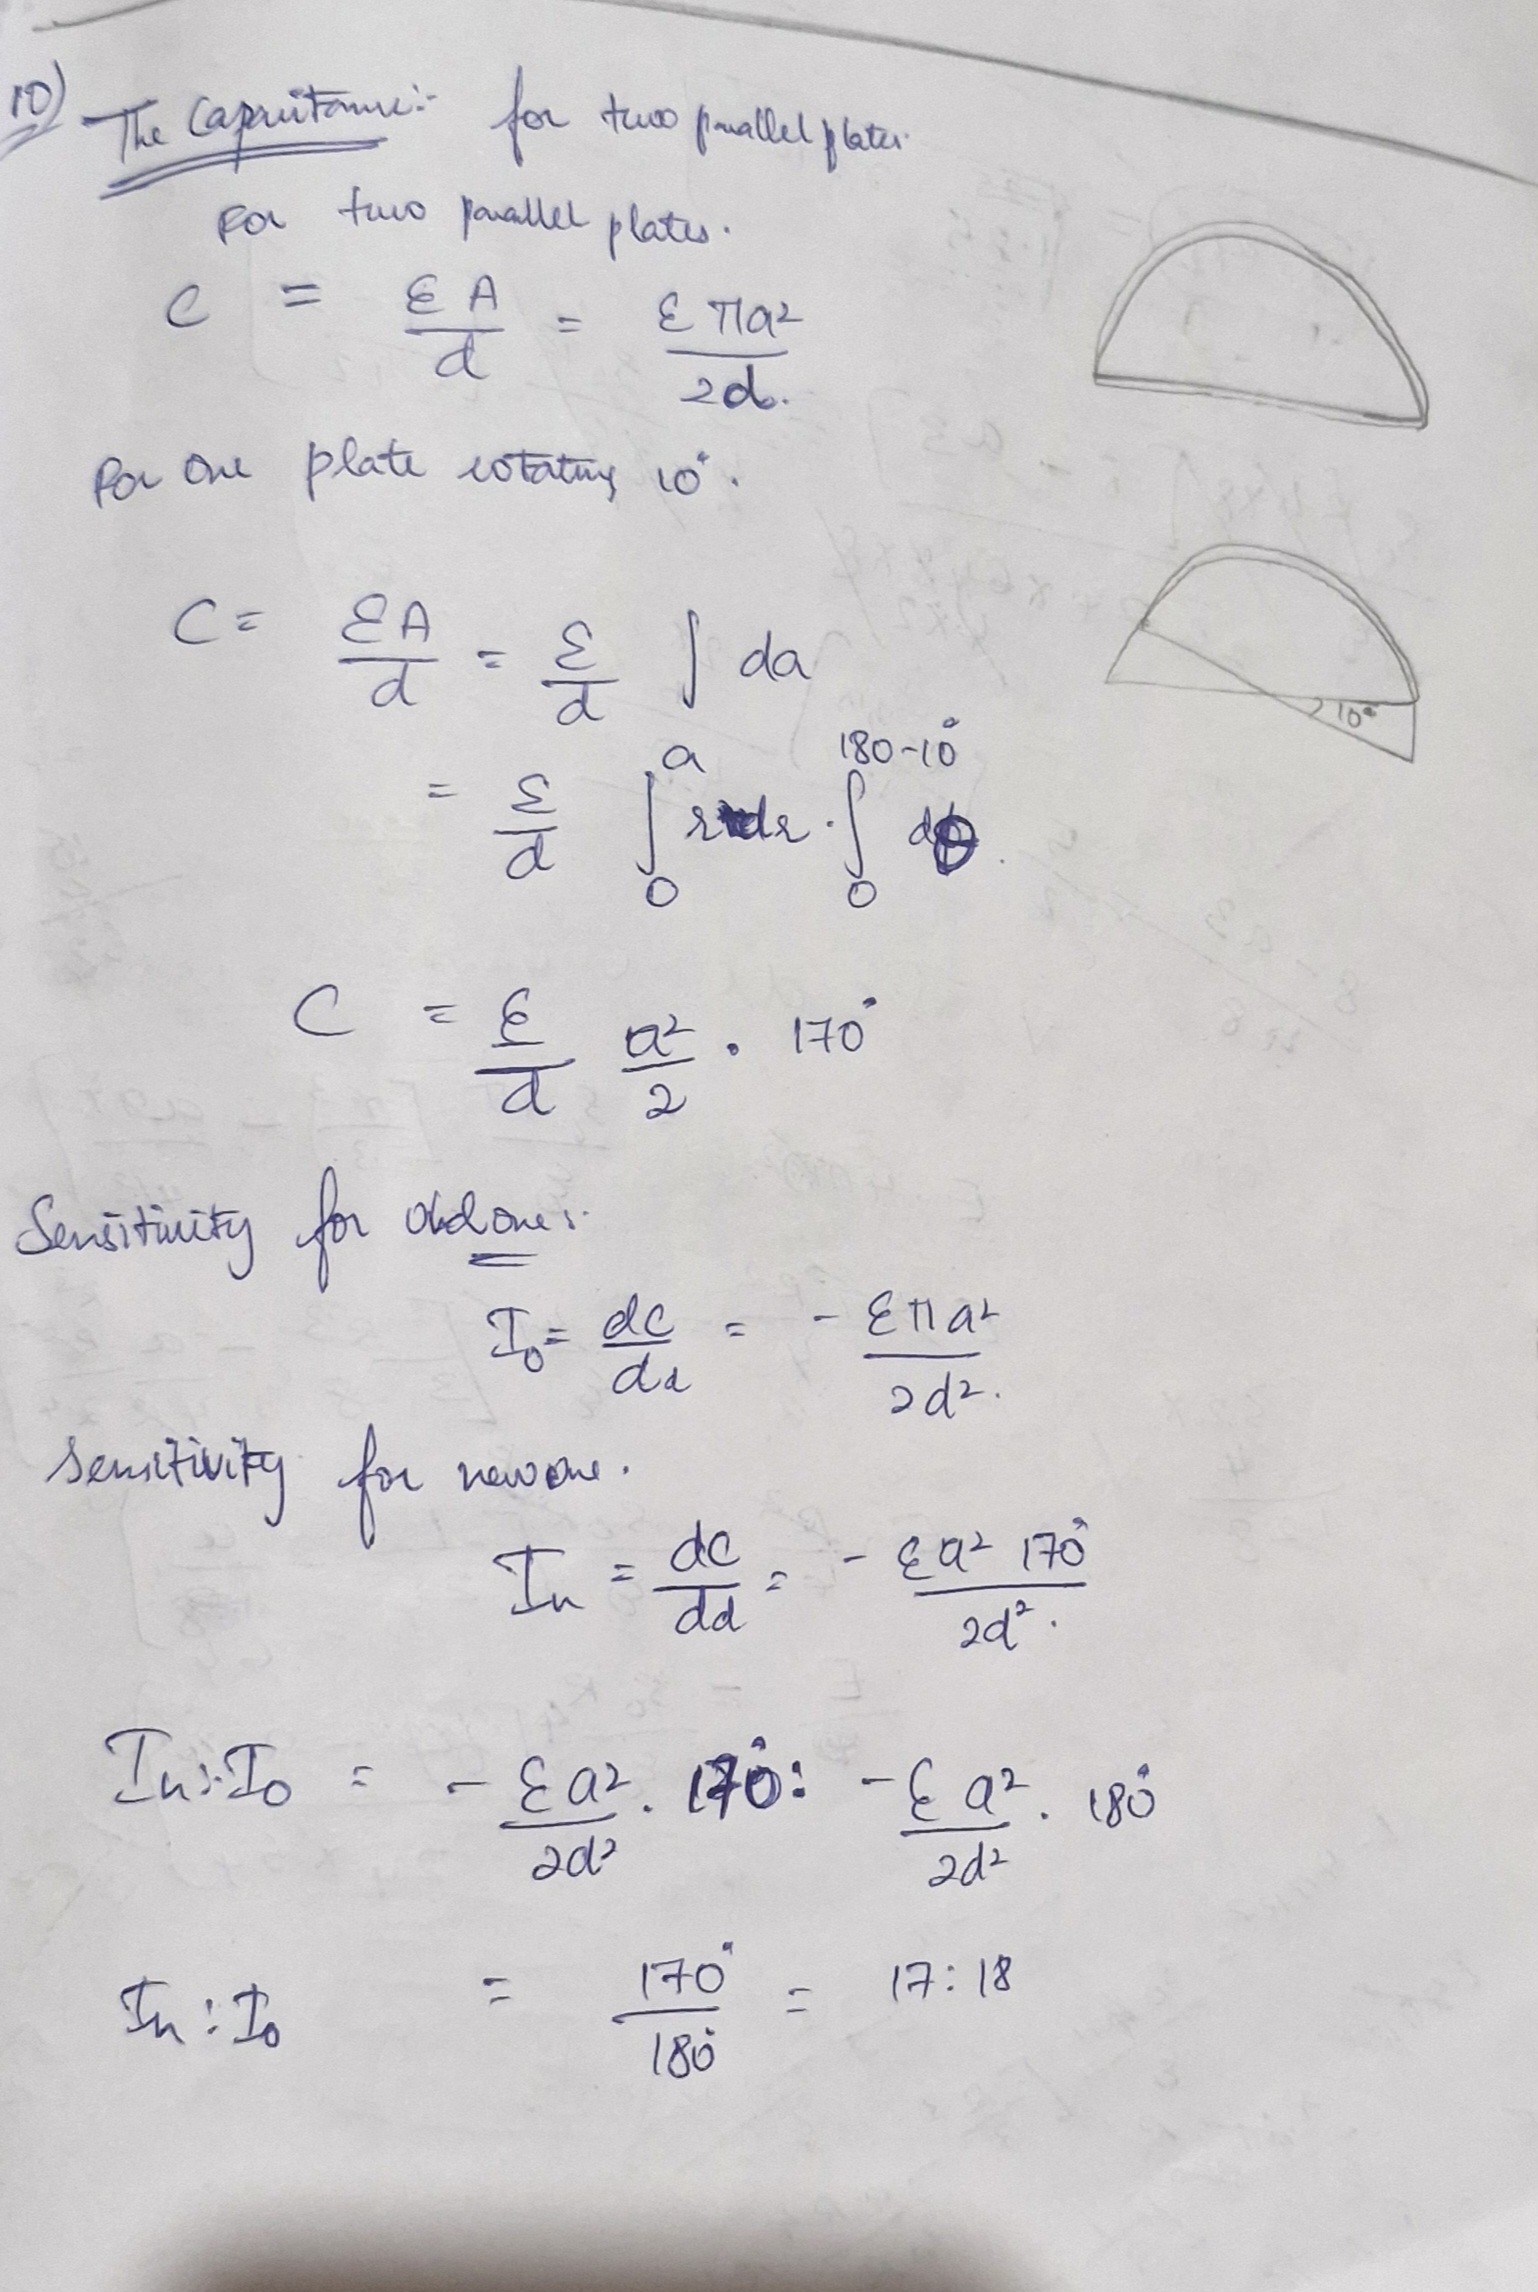 10) The Capacitance:- for two parallel plates.
For two parallel plates.
C = εA/d = επa²/2d.
For one plate rotating 10°.
C = εA/d = ε/d ∫ da
10°
= ε/d ∫₀ᵃ r dr . ∫₀¹⁸⁰⁻¹⁰° dθ.
C = ε/d a²/2 . 170°
Sensitivity for old one:-
I₀ = dC/dd = - επa²/2d².
Sensitivity for new one.
In = dC/dd = - εa² 170°/2d².
In : I₀ = - εa²/2d² . 170° : - εa²/2d² . 180°
In : I₀ = 170°/180° = 17:18